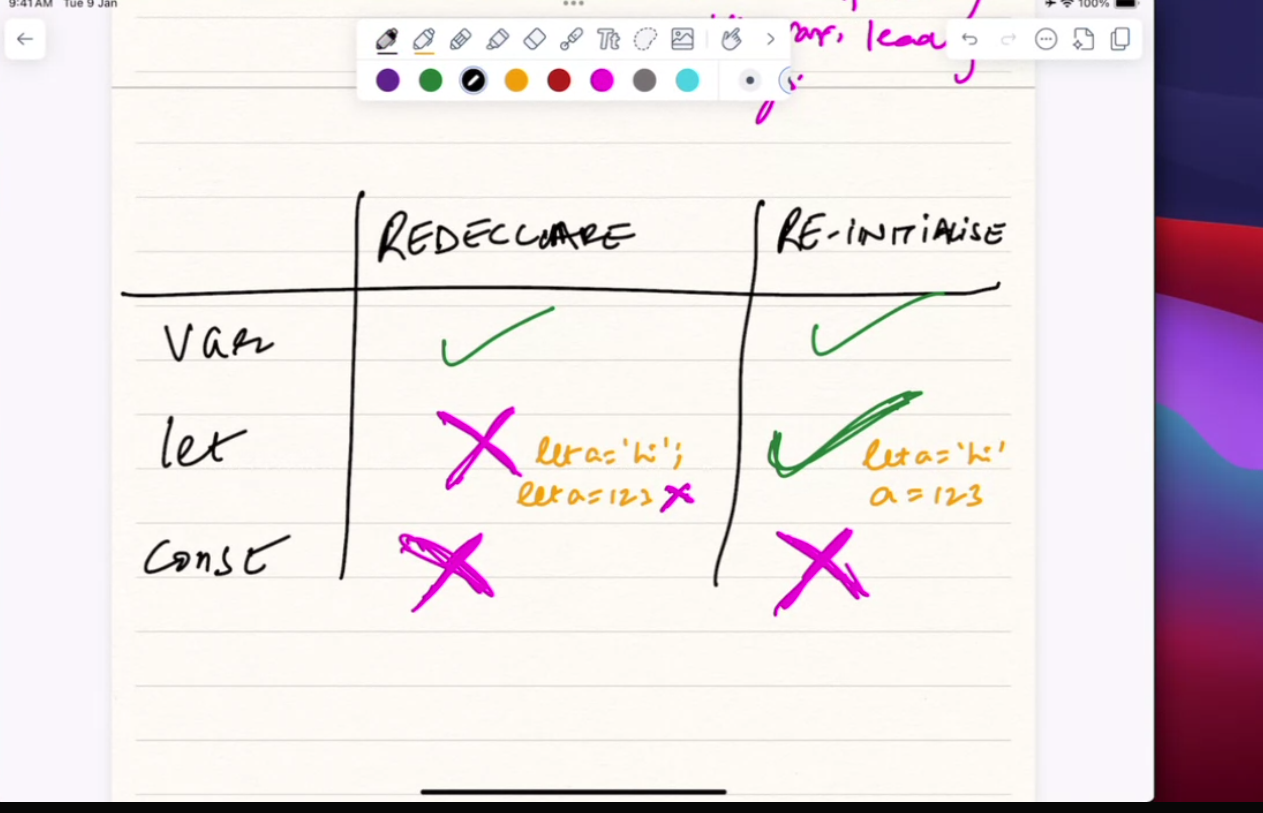 9:41 AM Tue 9 Jan
100%
lead
Tt
REDECLARE RE-INITIALISE
var
let
let a = 'hi'; let a = 'hi'
let a = 123 a = 123
const